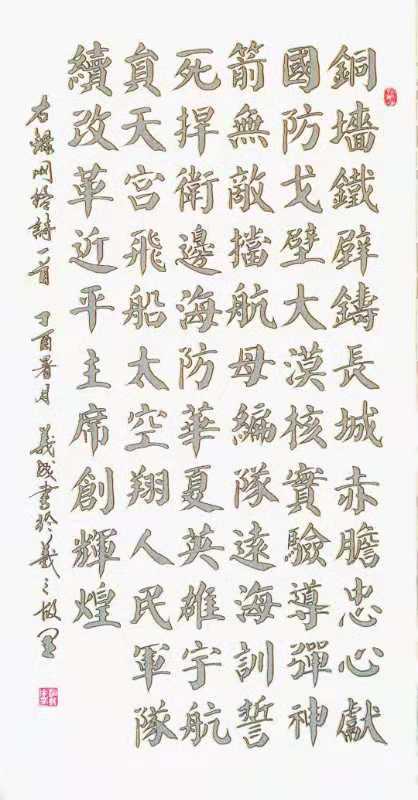 銅墻鐵壁鑄長城赤膽忠心獻
國防戈壁大漠核實驗導彈神
箭無敵擋航母編隊遠海訓誓
死捍衛邊海防華夏英雄宇航
員天宮飛船太空翔人民軍隊
續改革近平主席創輝煌
右錄网絡詩一首 丁酉暑月 義成書於羲之故里